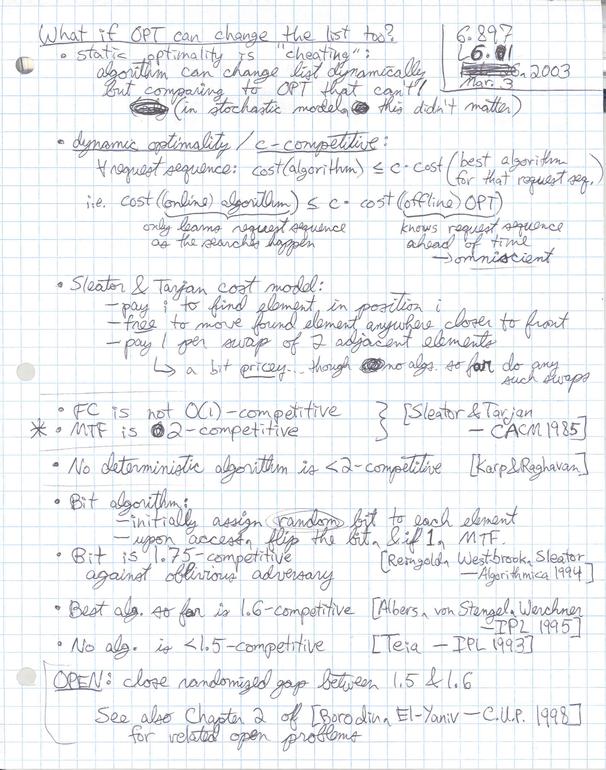 What if OPT can change the list too?
6.897
L6.01
2003
Mar. 3
• static optimality is "cheating":
algorithm can change list dynamically
but comparing to OPT that can't!
(in stochastic model, this didn't matter)
• dynamic optimality / c-competitive:
∀ request sequence: cost(algorithm) ≤ c · cost(best algorithm
for that request seq.)
i.e. cost((online) algorithm) ≤ c · cost((offline) OPT)
only learns request sequence
as the searches happen
knows request sequence
ahead of time
→ omniscient
• Sleator & Tarjan cost model:
– pay i to find element in position i
– free to move found element anywhere closer to front
– pay 1 per swap of 2 adjacent elements
↳ a bit pricey... though no algs. so far do any
such swaps
• FC is not O(1)-competitive } [Sleator & Tarjan
* • MTF is 2-competitive – CACM 1985]
• No deterministic algorithm is <2-competitive [Karp & Raghavan]
• Bit algorithm:
– initially assign random bit to each element
– upon access, flip the bit, & if 1, MTF.
• Bit is 1.75-competitive [Reingold, Westbrook, Sleator
against oblivious adversary – Algorithmica 1994]
• Best alg. so far is 1.6-competitive [Albers, von Stengel, Werchner
– IPL 1995]
• No alg. is <1.5-competitive [Teia – IPL 1993]
OPEN: close randomized gap between 1.5 & 1.6
See also Chapter 2 of [Borodin, El-Yaniv – C.U.P. 1998]
for related open problems